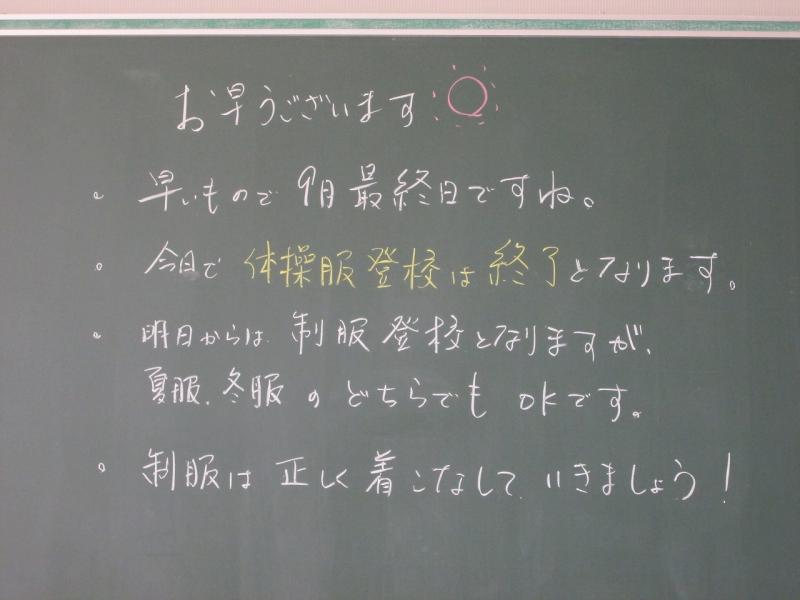 お早うございます
・早いもので 9月最終日ですね。
・今日で 体操服登校は終了となります。
・明日からは 制服登校となりますが、
夏服、冬服のどちらでもOKです。
・制服は正しく着こなしていきましょう!